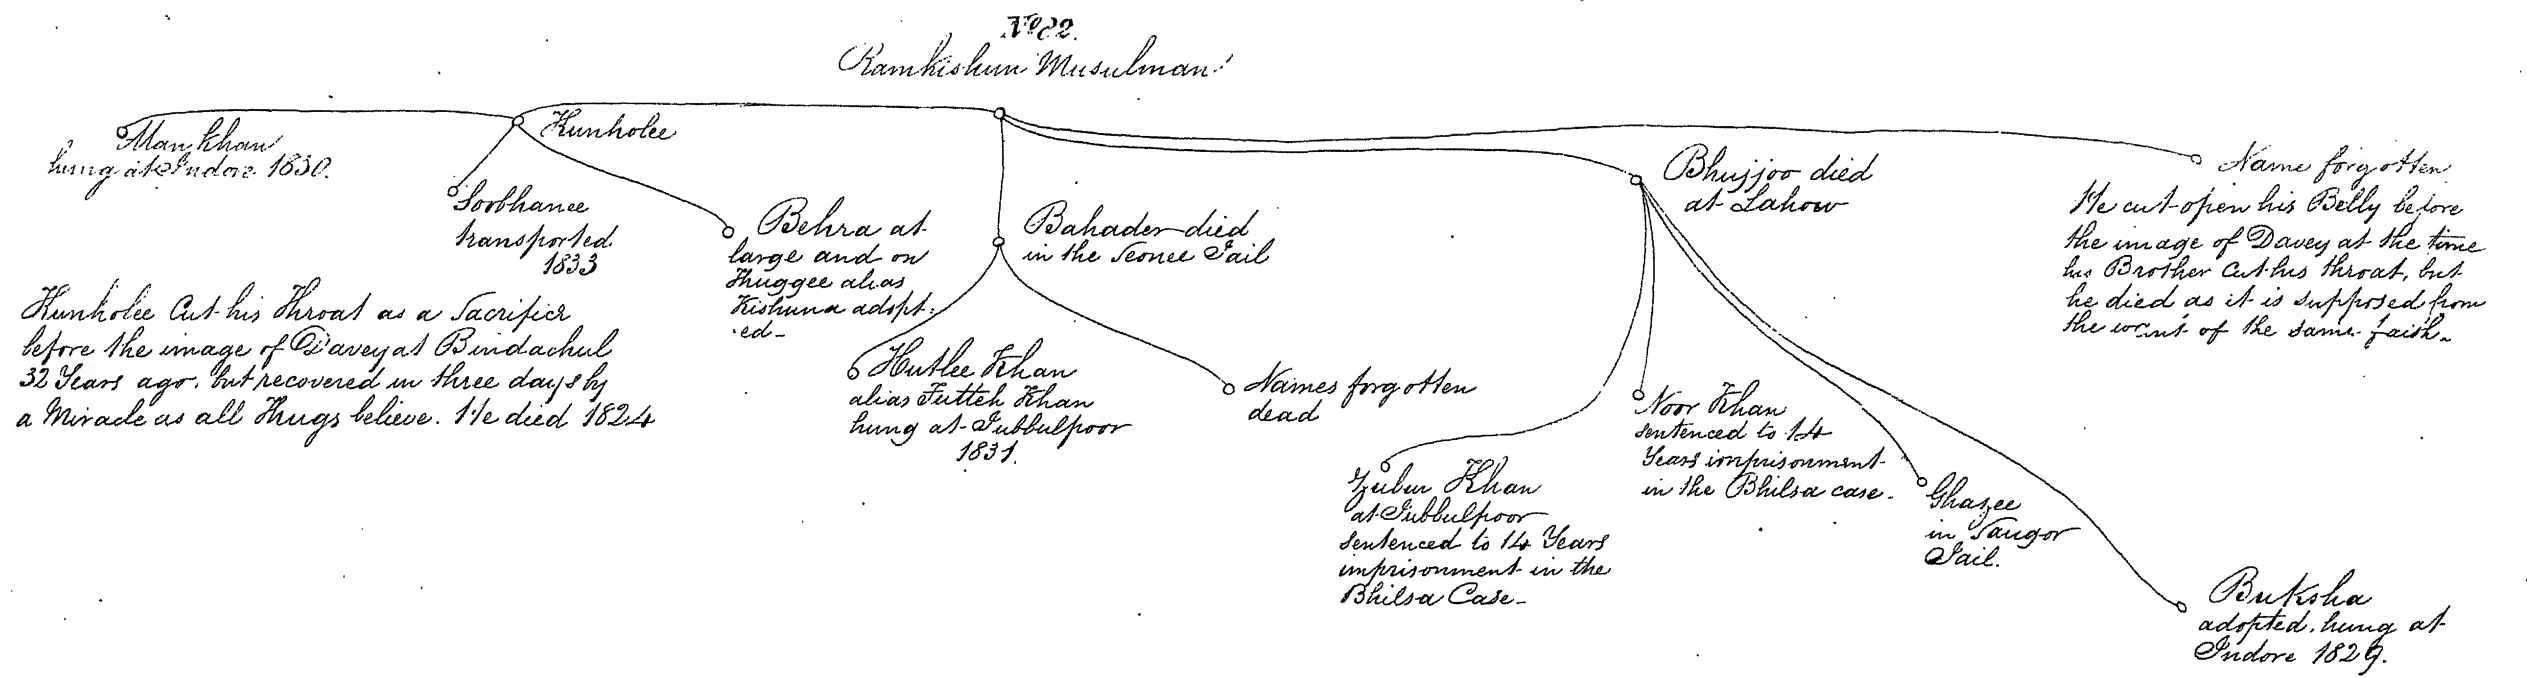 No 22.
Ramkishun Musulman
Man Khan
hung at Indore 1830.
Kunholee
Sorbhanee
transported
1833
Behra at
large and on
Thuggee alias
Kishuna adopt-
-ed-
Kunholee Cut his Throat as a Sacrifice
before the image of Davey at Bindachul
32 Years ago, but recovered in three days by
a Miracle as all Thugs believe. He died 1824
Bahader died
in the Seonee Jail
Hutlee Khan
alias Futteh Khan
hung at Jubbulpoor
1831.
Names forgotten
dead
Bhujjoo died
at Lahow
Zubur Khan
at Jubbulpoor
sentenced to 14 Years
imprisonment in the
Bhilsa Case-
Noor Khan
sentenced to 14
Years imprisonment
in the Bhilsa case-
Ghazee
in Saugor
Jail.
Buksha
adopted, hung at
Indore 1829.
Name forgotten
He cut open his Belly before
the image of Davey at the time
his Brother Cut his throat, but
he died as it is supposed from
the want of the same faith.